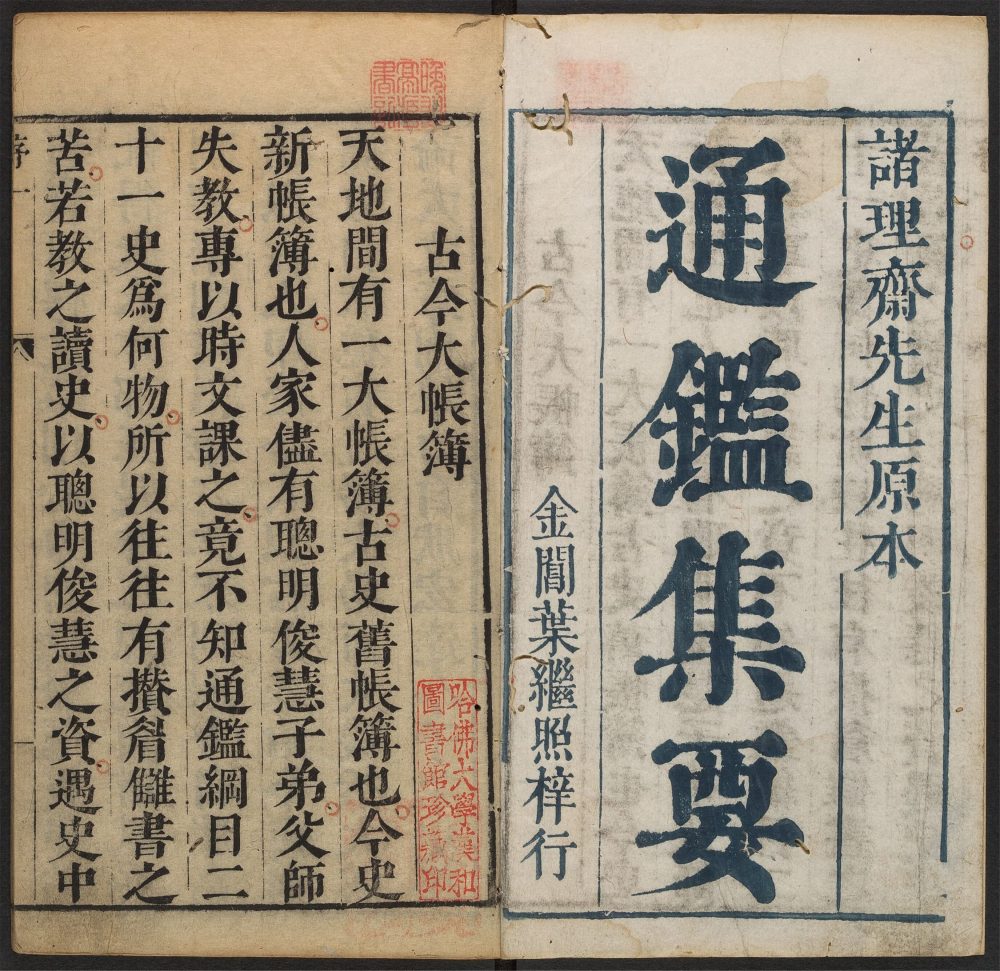 諸理齋先生原本
通鑑集要
金閶葉繼照梓行
古今大帳簿
天地間有一大帳簿古史舊帳簿也今史
新帳簿也人家儘有聰明俊慧子弟父師
失教專以時文課之竟不知通鑑綱目二
十一史爲何物所以往往有攢眉讎書之
苦若教之讀史以聰明俊慧之資遇史中
序一
哈佛大學漢和
圖書館珍藏印